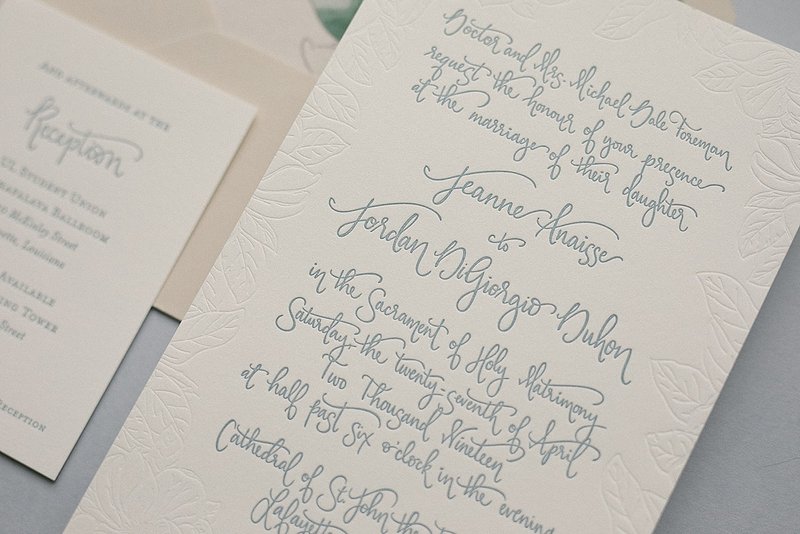 AND AFTERWARDS AT THE
Reception
UL STUDENT UNION
BALLROOM
McKinley Street
Louisiana
AVAILABLE
TOWER
Street
RECEPTION
Doctor and Mrs. Michael Dale Foreman
request the honour of your presence
at the marriage of their daughter
Jeanne Anaisse
to
Jordan DiGiorgio Duhon
in the Sacrament of Holy Matrimony
Saturday, the twenty-seventh of April
Two Thousand Nineteen
at half past six o'clock in the evening
Cathedral of St. John the
Lafayette